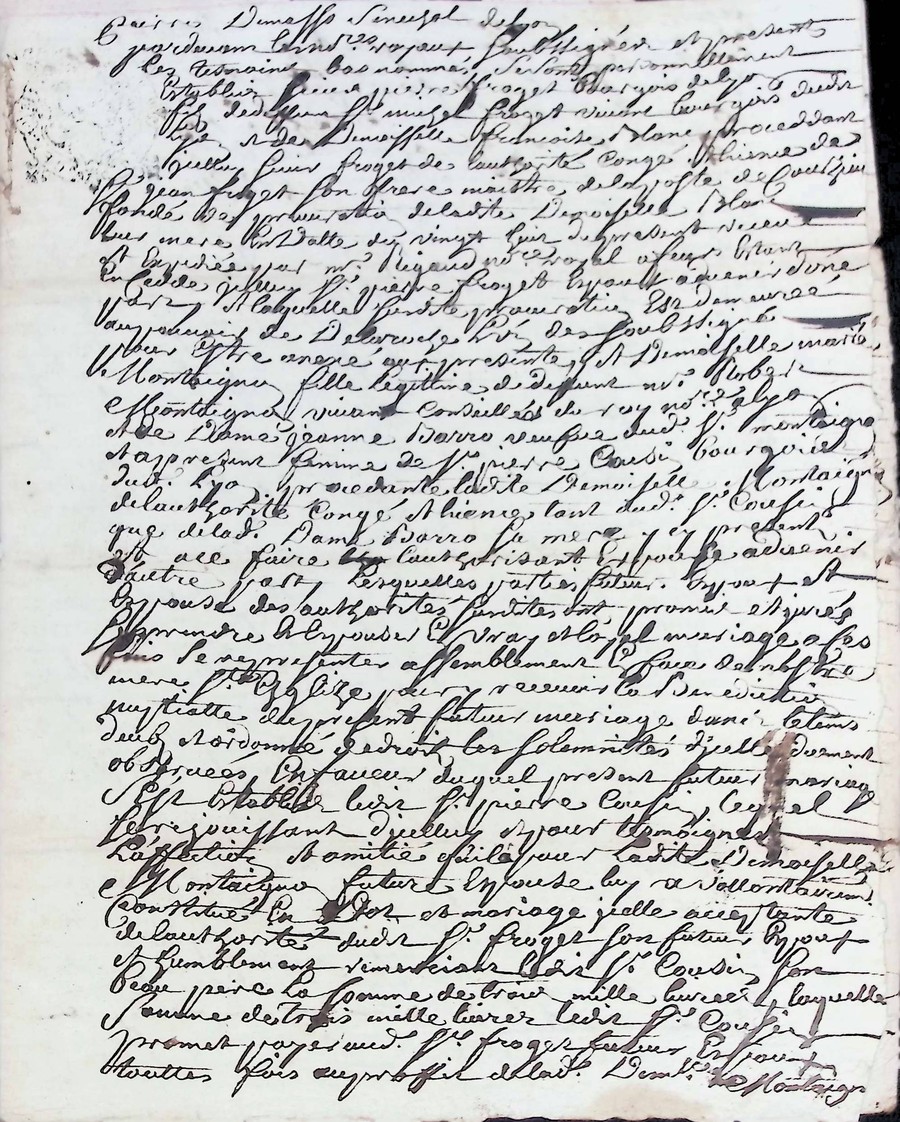 Demasso Senechal de Lyon
pardevant les no.res royaux soubssignés et presents
les tesmoins bas nommés se sont personnellement
establis sieur pierre froget bourgois de Lyon
fils de deffunt S.r michel froget vivant bourgois dudit
Lyon et de Demoiselle francoise Blanc procedant
jcelluy sieur froget de lauthorité congé & licence de
S.r jean froget son frere maistre de la poste de
fondé de procuration de ladite Demoiselle Blanc
leur mere en datte du vingt huit du present receue
et expediée par m.e Rigaud no.re royal a feurs estant
en jcelluy S.r pierre froget Espoux advenir d'une
part, A laquelle susdite procuration Est demeurée
au pouvoir de Delaroche L'un des soubssignés
pour Estre anexé aux presentes, et Demoiselle marie
Montaigne fille legitime de deffunt m.e Robert
Montaigne vivant Conseiller du roy no.re a Lyon
et de Dame jeanne Barro veufve dud. S.r montaigne
et apresent femme de S.r pierre Cousin bourgois
dud. Lyon, procedante ladite Demoiselle Montaigne
de lauthorité Congé & licence tant dud. S.r Cousin
que de lad. Dame Barro sa mere jcy presents
et a ce faire lauthorisant Espouse advenir
d'autre part, Lesquelles parties futur Espoux et
Espouse des authorités susdites ont promis et jurés
se prendre et Espouser En vray et loyal mariage a ces
fins se representer assemblement En face de nostre
mere S.te Eglize pour y recevoir la Benediction
nuptialle du present futur mariage dans le tems
deub et ordonné de droit les solemnités d'jcelle deuement
observées, En faveur duquel present futur mariage
s'Est Establis ledit S.r pierre Cousin, Lequel
se rejouissant d'jcelluy et pour temoigner
L'affection et amitié qu'il a pour Ladite Demoiselle
Montaigne future Espouse luy a vollontairem.t
Constitué En Dot et mariage jcelle acceptante
de lauthorité dudit S.r froget son futur Espoux
et humblement remerciant ledit S.r Cousin son
beau pere La somme de trois mille livres, laquelle
somme de trois mille livres ledit S.r Cousin
promet payer aud. S.r froget futur Espoux
touttes fois au proffit de lad. Dem.lle Montaigne